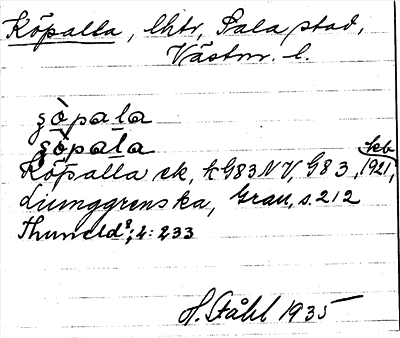 Köpalla, lhtr, Sala stad,
Västm. l.
şòpala
şòpala
Köpalla ek, k G83 NV, G83, kb 1921,
Ljunggrenska, Grau, s. 212
Thuneld², 4: 233
H. Ståhl 1935